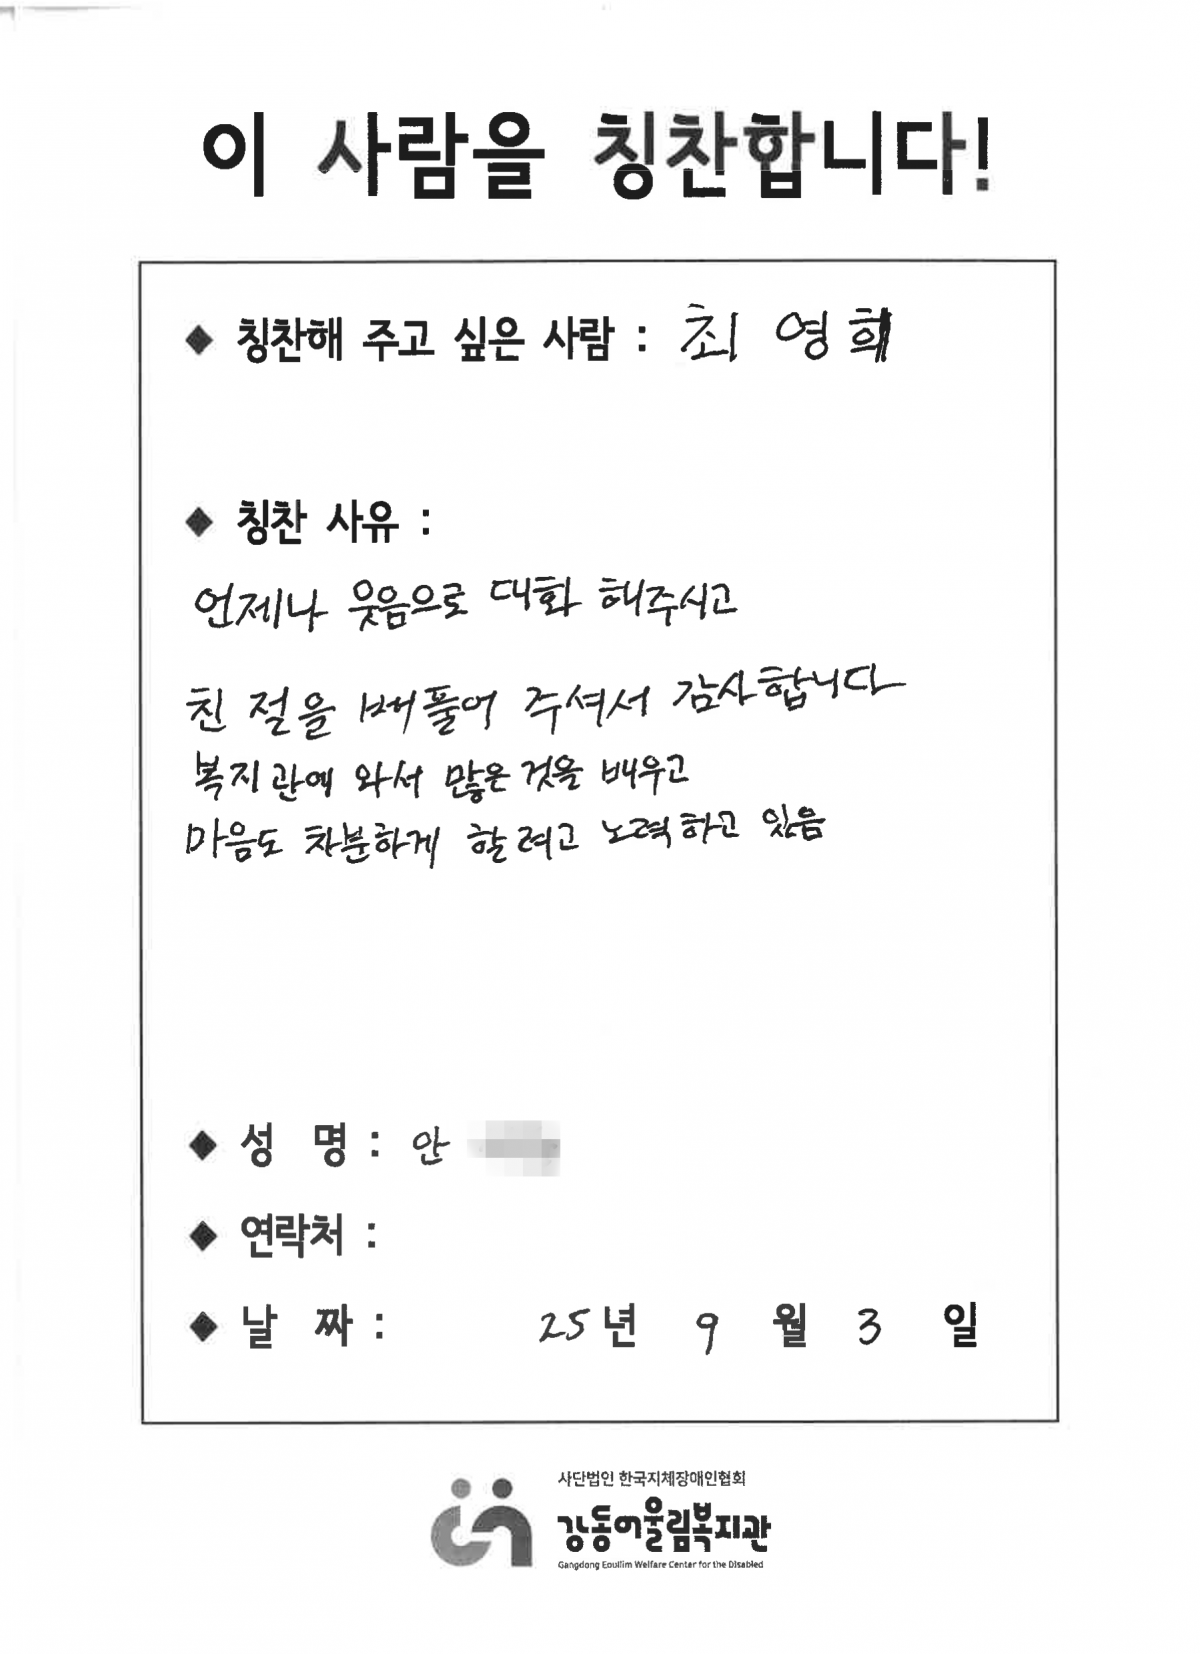 이 사람을 칭찬합니다!
◆ 칭찬해 주고 싶은 사람 : 최 영희
◆ 칭찬 사유 :
언제나 웃음으로 대화 해주시고
친절을 베풀어 주셔서 감사합니다
복지관에 와서 많은것을 배우고
마음도 차분하게 할려고 노력하고 있음
◆ 성 명 : 안
◆ 연락처 :
◆ 날 짜 : 25년 9 월 3 일
사단법인 한국지체장애인협회
강동어울림복지관
Gangdong Eoullim Welfare Center for the Disabled